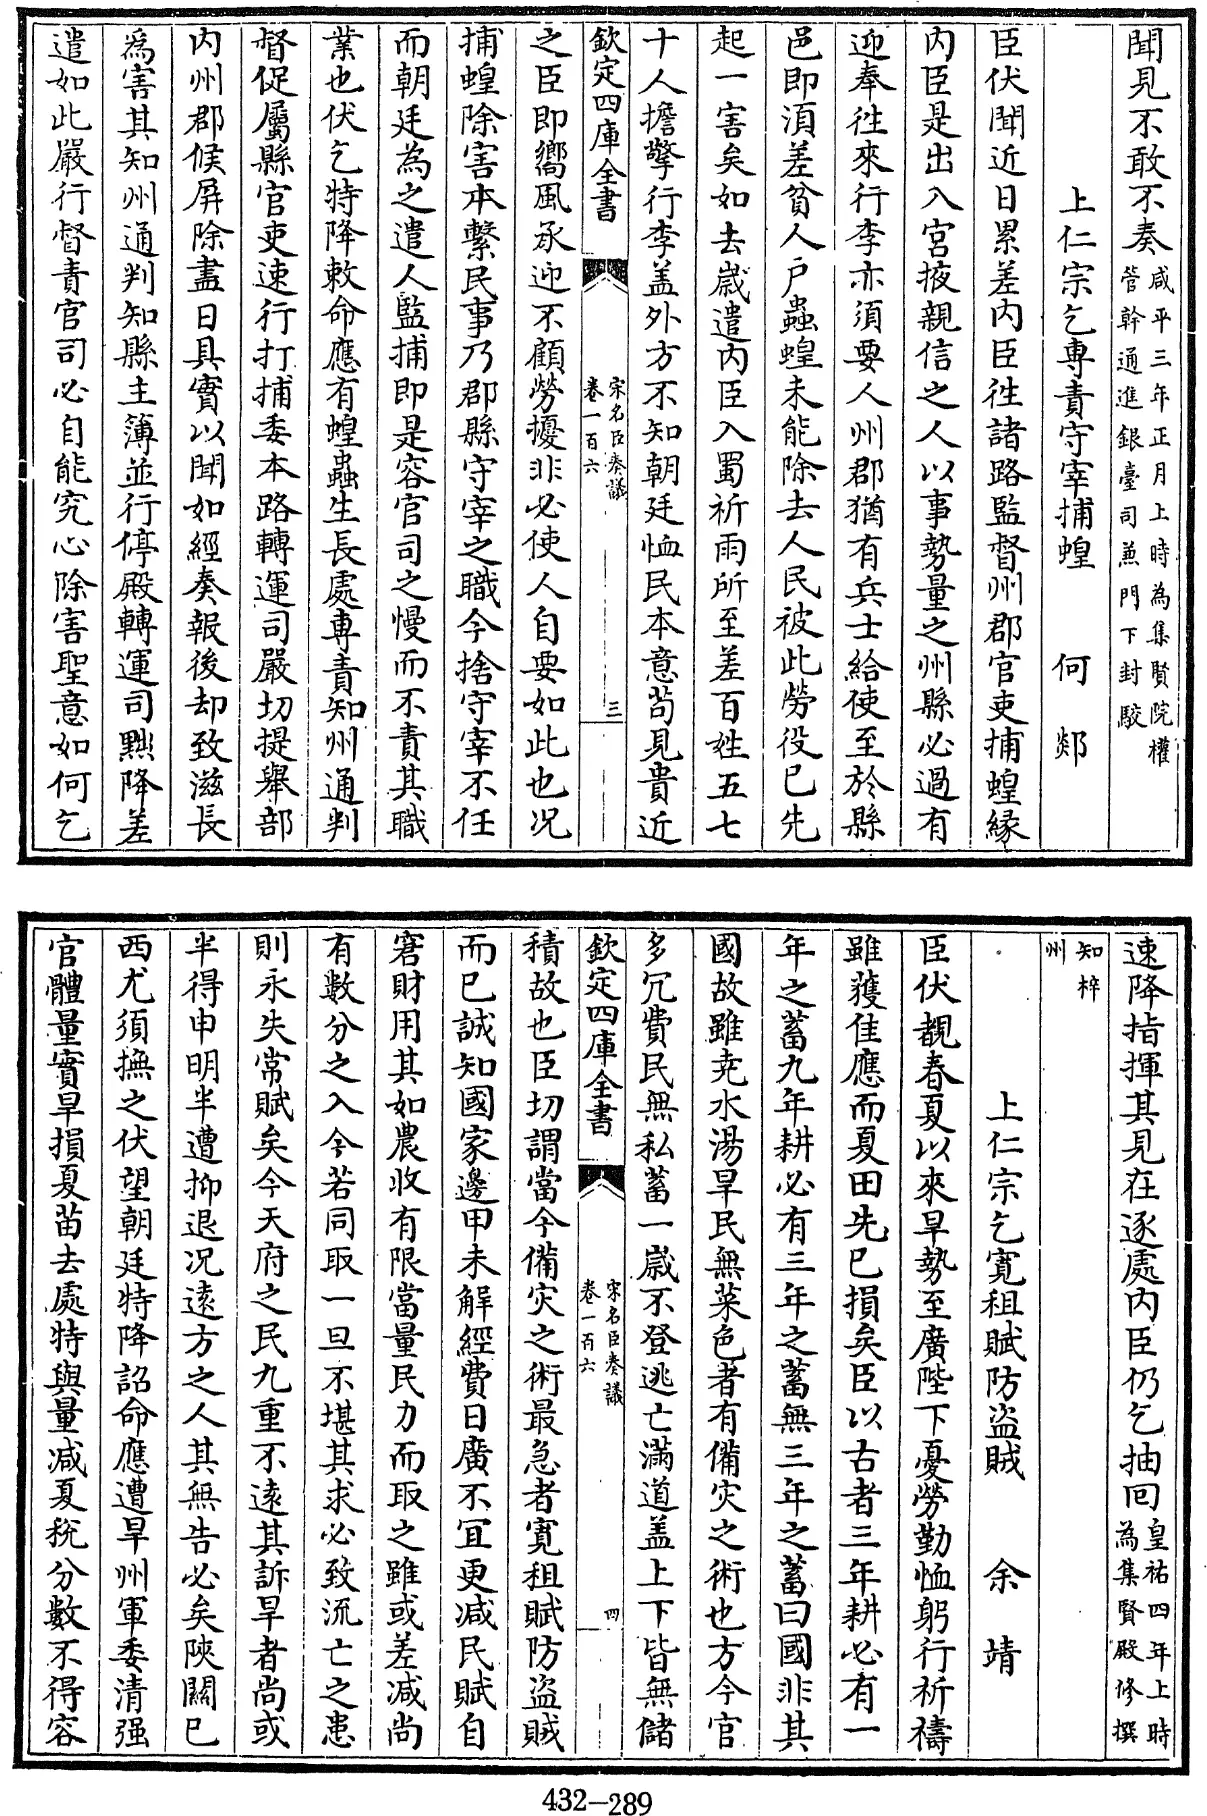 聞見不敢不奏咸平三年正月上時為集賢院權管幹通進銀臺司兼門下封駮
上仁宗乞專責守宰捕蝗　何郯
臣伏聞近日累差内臣徃諸路監督州郡官吏捕蝗緣
内臣是出入宫掖親信之人以事勢量之州縣必過有
迎奉徃來行李亦須要人州郡猶有兵士給使至於縣
邑即湏差貧人户蟲蝗未能除去人民被此勞役已先
起一害矣如去嵗遣内臣入蜀祈雨所至差百姓五七
十人擔擎行李盖外方不知朝廷恤民本意茍見貴近
欽定四庫全書　宋名臣奏議 卷一百六　三
之臣即嚮風承迎不顧勞擾非必使人自要如此也况
捕蝗除害本繫民事乃郡縣守宰之職今捨守宰不任
而朝廷為之遣人監捕即是容官司之慢而不責其職
業也伏乞特降敕命應有蝗蟲生長處專責知州通判
督促屬縣官吏速行打捕委本路轉運司嚴切提舉部
内州郡候屏除盡日具實以聞如經奏報後却致滋長
為害其知州通判知縣主薄並行停殿轉運司㸃降差
遣如此嚴行督責官司必自能究心除害聖意如何乞
速降指揮其見在逐處内臣仍乞抽回皇祐四年上時為集賢殿修撰
知梓州
上仁宗乞寛租賦防盗賊　余靖
臣伏覩春夏以來旱勢至廣陛下憂勞勤恤躬行祈禱
雖獲佳應而夏田先已損矣臣以古者三年耕必有一
年之蓄九年耕必有三年之蓄無三年之蓄曰國非其
國故雖堯水湯旱民無菜色者有備灾之術也方今官
多冗費民無私蓄一嵗不登逃亡滿道盖上下皆無儲
欽定四庫全書　宋名臣奏議 卷一百六　四
積故也臣切謂當今備灾之術最急者寛租賦防盗賊
而已誠知國家邊甲未解經費日廣不宜更减民賦自
窘財用其如農收有限當量民力而取之雖或差减尚
有數分之入今若同取一旦不堪其求必致流亡之患
則永失常賦矣今天府之民九重不逺其訴旱者尚或
半得申明半遭抑退况逺方之人其無告必矣陜關已
西尤須撫之伏望朝廷特降詔命應遭旱州軍委清强
官體量實旱損夏苗去處特與量减夏稅分數不得容
432-289